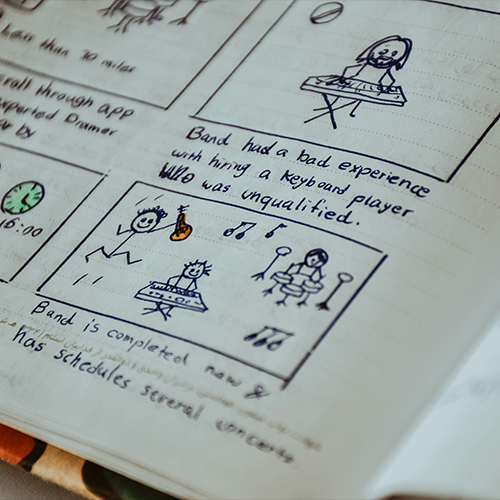 Less than 20 miles
through app
Drumer
by
Band had a bad experience
with hiring a keyboard player
who was unqualified.
16:00
Band is completed now &
has schedules several concerts